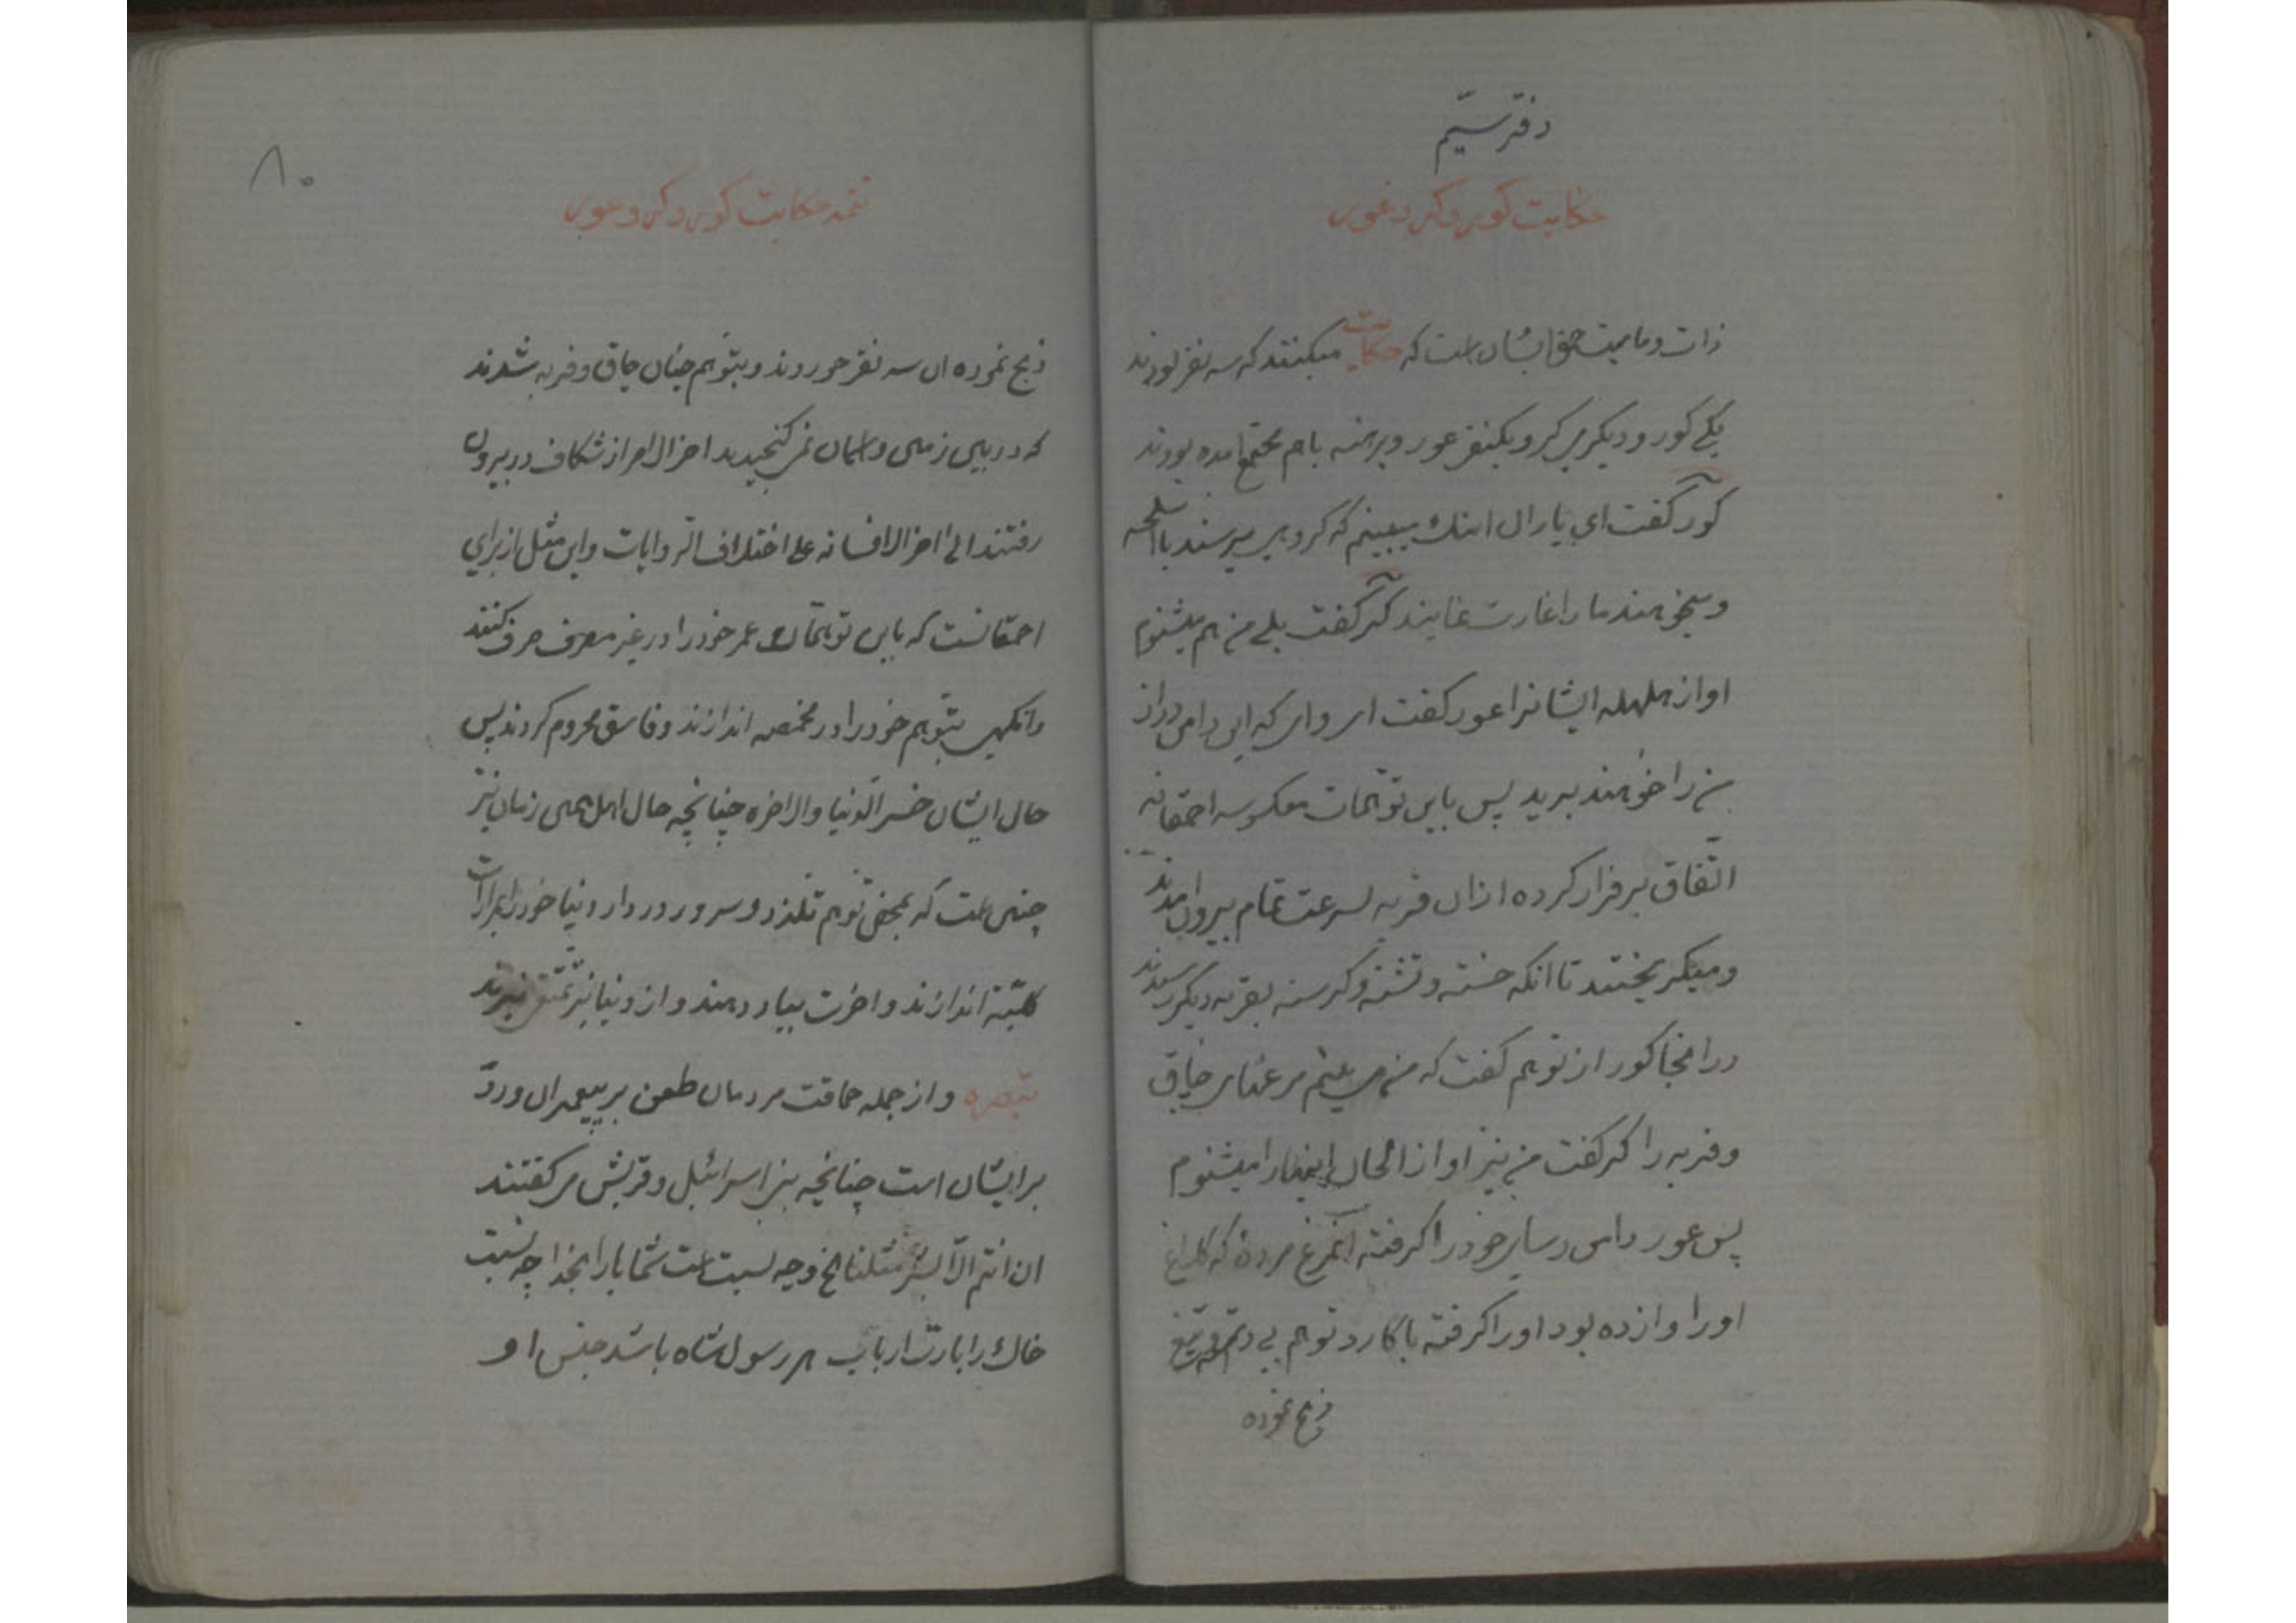 دفتر سیم
حکایت کور و کر و عور
ذات و ماهیت حق ایشان است که حکایت میکنند که سه نفر بودند
یکی کور و دیگری کر و یکنفر عور و برهنه باهم مجتمع آمده بودند
کور گفت ای یاران اینك میبینم که گروهی میرسند با اسلحه
و میخواهند ما را غارت نمایند کر گفت بلی من هم میشنوم
اواز هلهله ایشانرا عور گفت ای وای که این دامن دراز
من را خواهند برید پس باین توهمات معکوسه احمقانه
اتفاق بر فرار کرده ازان قریه بسرعت تمام بیرون امدند
و میگریختند تا انکه خسته و تشنه و گرسنه بقریه دیگر رسیدند
در انجا کور از توهم گفت که من می بینم مرغهای چاق
و فربه را کر گفت من نیز اواز الحان اینها را میشنوم
پس عور دامن رسای خود را گرفته آنمرغ مرده که کلاغ
او را وازده بود او را گرفته با کارد توهم بی دسته و تیغ
ذبح نموده
۸۰
تتمه حکایت کور و کر و عور
ذبح نموده ان سه نفر خوردند و بتوهم چنان چاق و فربه شدند
که در بین زمین و اسمان نمی گنجیدند اخر الامر از شکاف در بیرون
رفتند الی اخر الافسانه علی اختلاف الروایات و این مثل از برای
احمقانست که باین توهمات عمر خود را در غیر مصرف صرف کنند
وانگهی بتوهم خود را در مخمصه اندازند و فاسق محروم گردند پس
حال ایشان خسر الدنیا والاخره چنانچه حال اهل همین زمان نیز
چنین است که بمحض توهم تلذذ و سرور در دار دنیا خود را
کلیّة اندازند و اخرت بباد دهند و از دنیا نیز تمتّع نبرند
تبصره و از جمله حماقت مردمان طعن بر پیغمبران و ردّ
بر ایشان است چنانچه بنی اسرائیل و قریش می گفتند
ان انتم الّا بشر مثلنا الخ و چه نسبت است شما ها را بخدا چه نسبت
خاك را با ربّ ارباب هر رسول شاه باشد جنس او